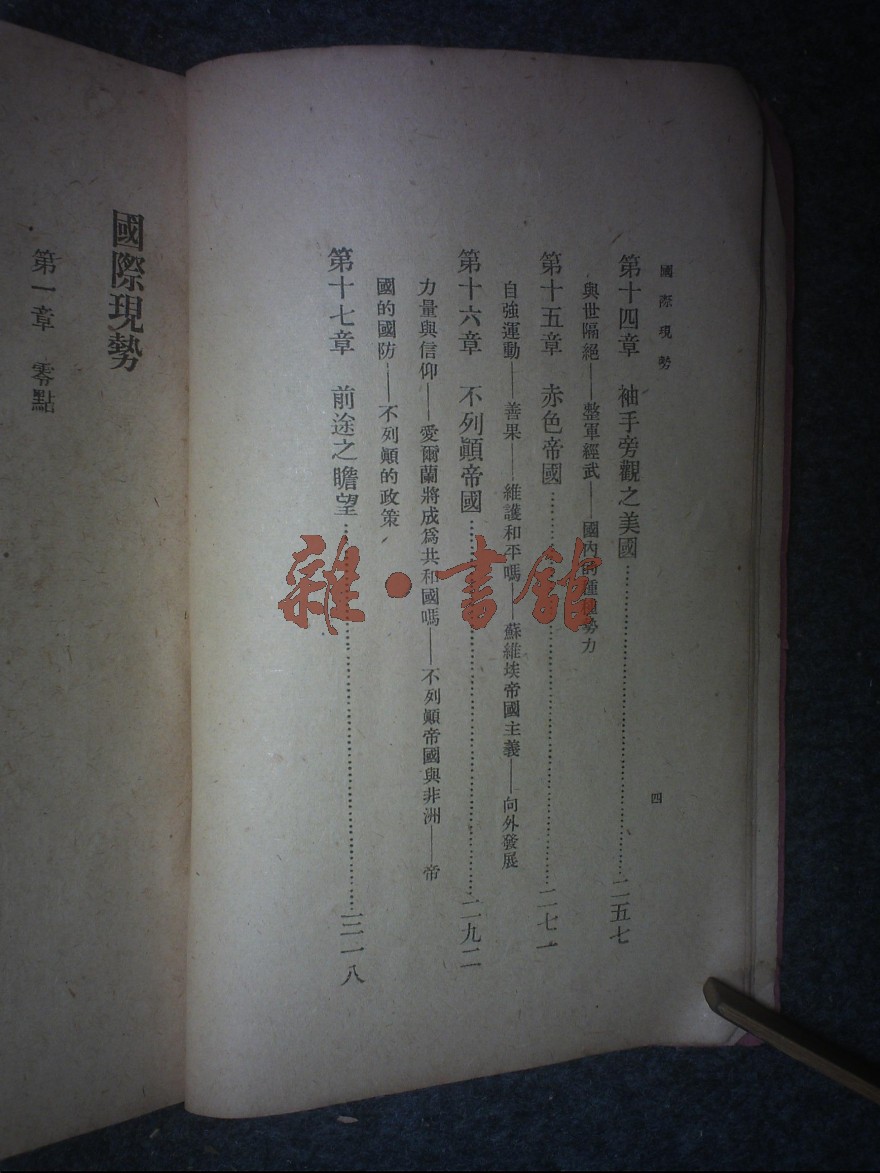 國際現勢
四
第十四章 袖手旁觀之美國……二五七
與世隔絕——整軍經武——國內的種種勢力
第十五章 赤色帝國……二七一
自強運動——善果——維護和平嗎——蘇維埃帝國主義——向外發展
第十六章 不列顛帝國……二九二
力量與信仰——愛爾蘭將成爲共和國嗎——不列顛帝國與非洲——帝
國的國防——不列顛的政策
第十七章 前途之瞻望……三一八
國際現勢
第一章 零點
雜·書館